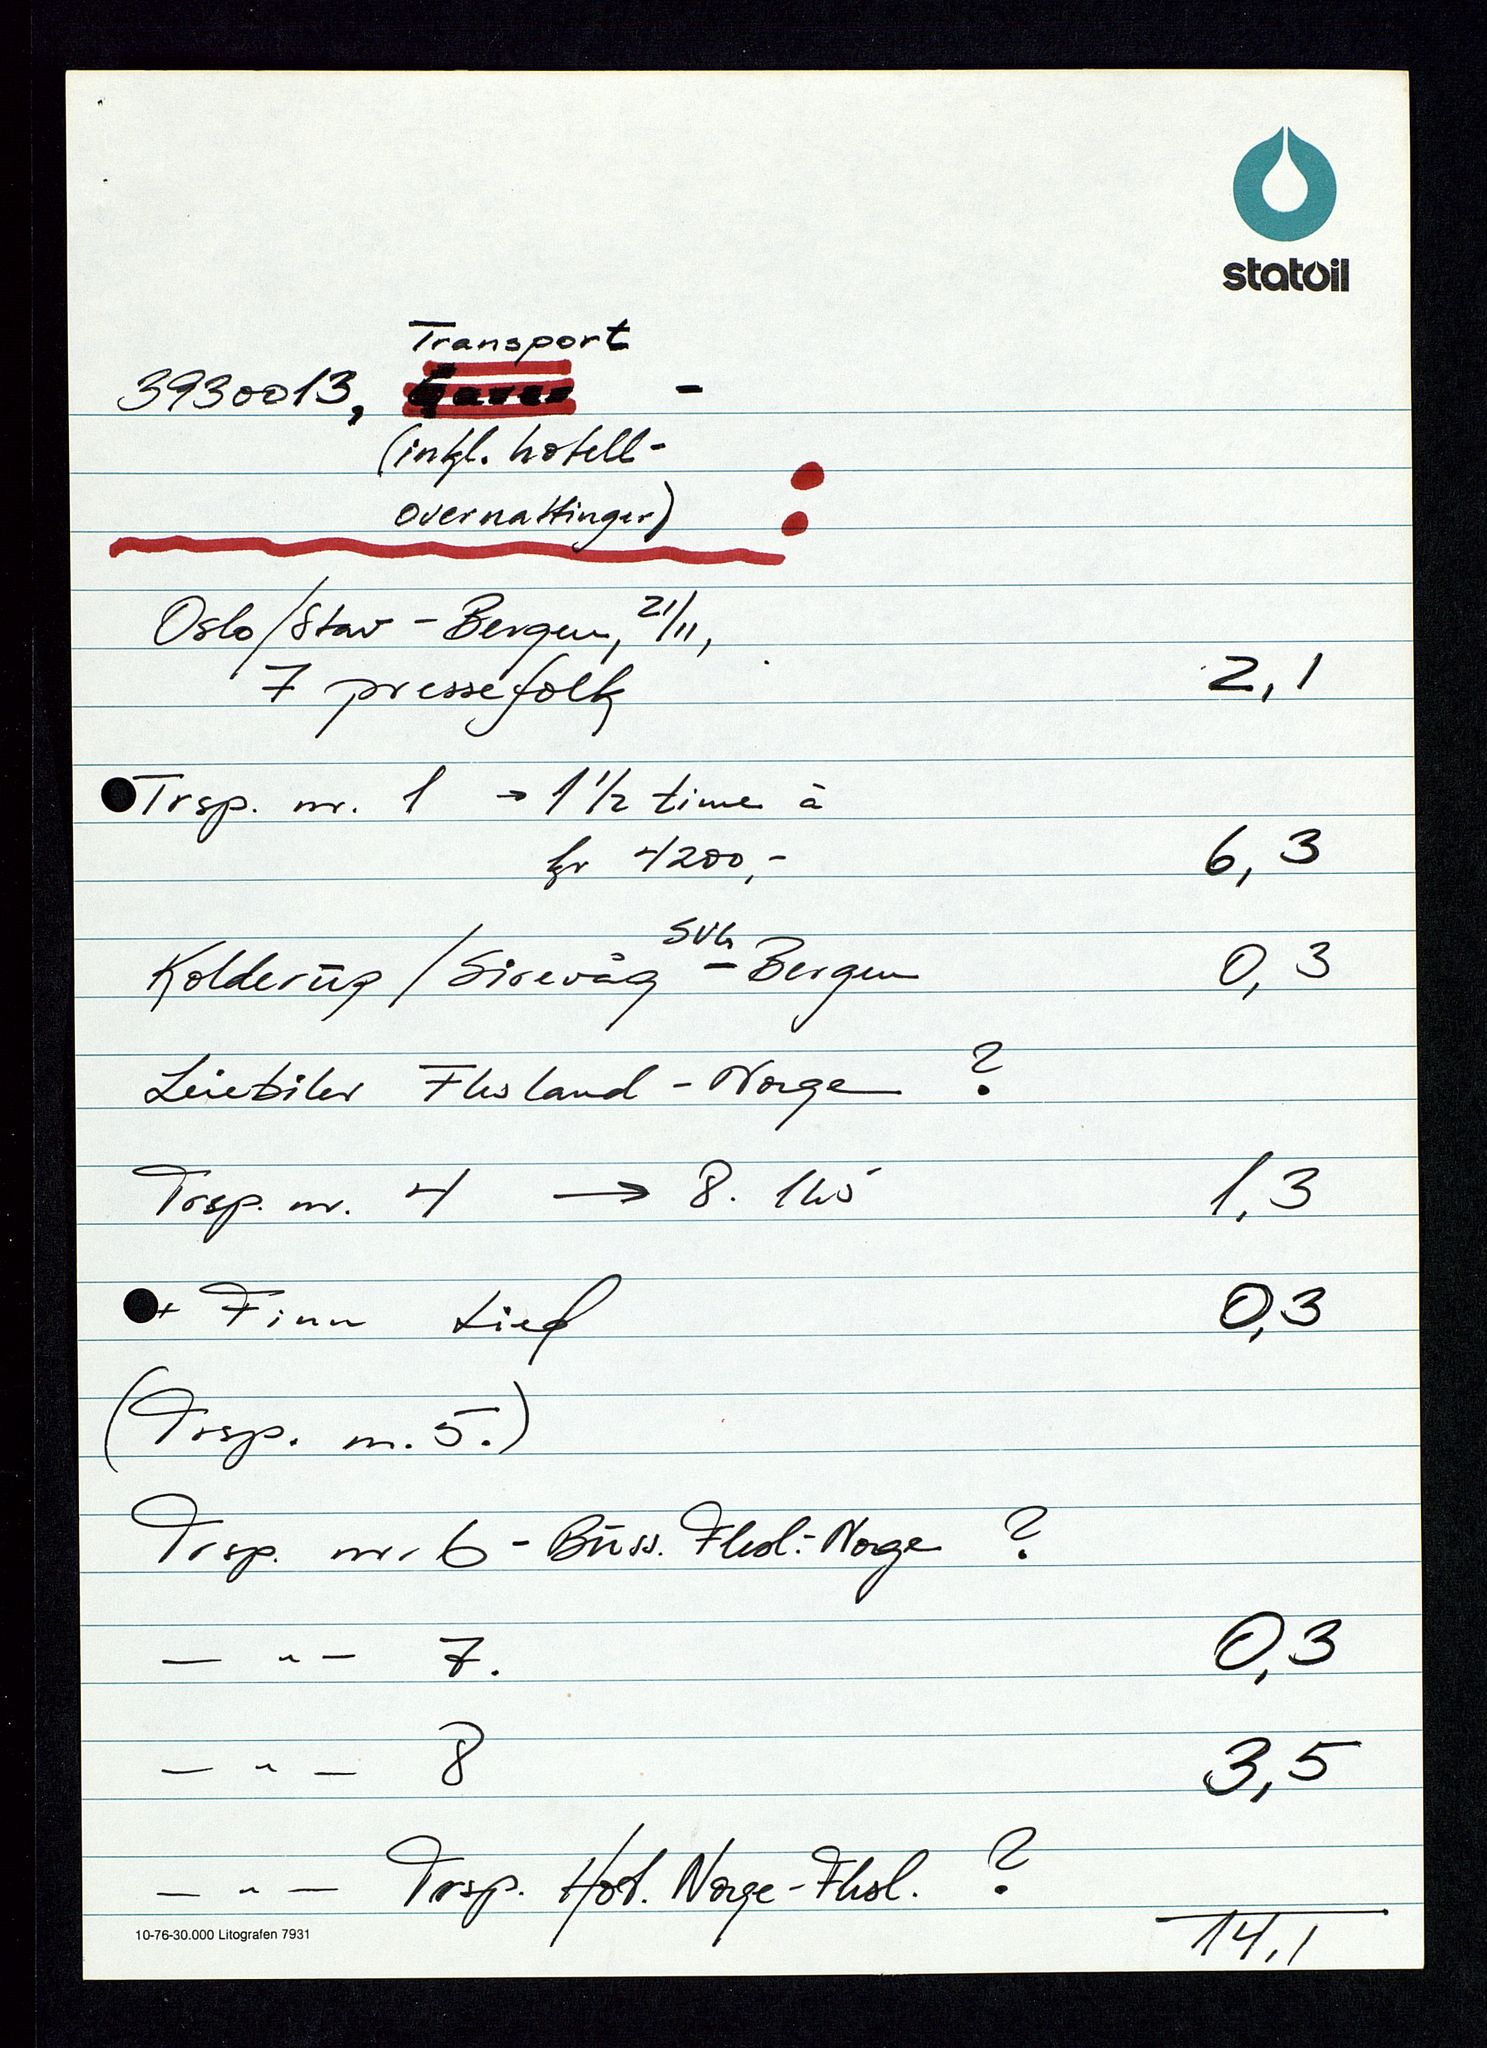 statoil
Transport
3930013, Gaver -
(inkl. hotell-
overnattinger) :
Oslo/Stav - Bergen, 21/11,
7 pressefolk 2,1
Trsp. nr. 1 → 1 1/2 time à
kr 4200,- 6,3
Kolderup/Sirevåg SVG - Bergen 0,3
Leiebiler Flesland - Norge ?
Trsp. nr. 4 → 8. 1,3
+ Finn Lied 0,3
(Trsp. nr. 5.)
Trsp. nr. 6 - Buss. Flesl. - Norge ?
— " — 7. 0,3
— " — 8 3,5
— " — Trsp. Hot. Norge - Flesl. ?
14,1
10-76-30.000 Litografen 7931